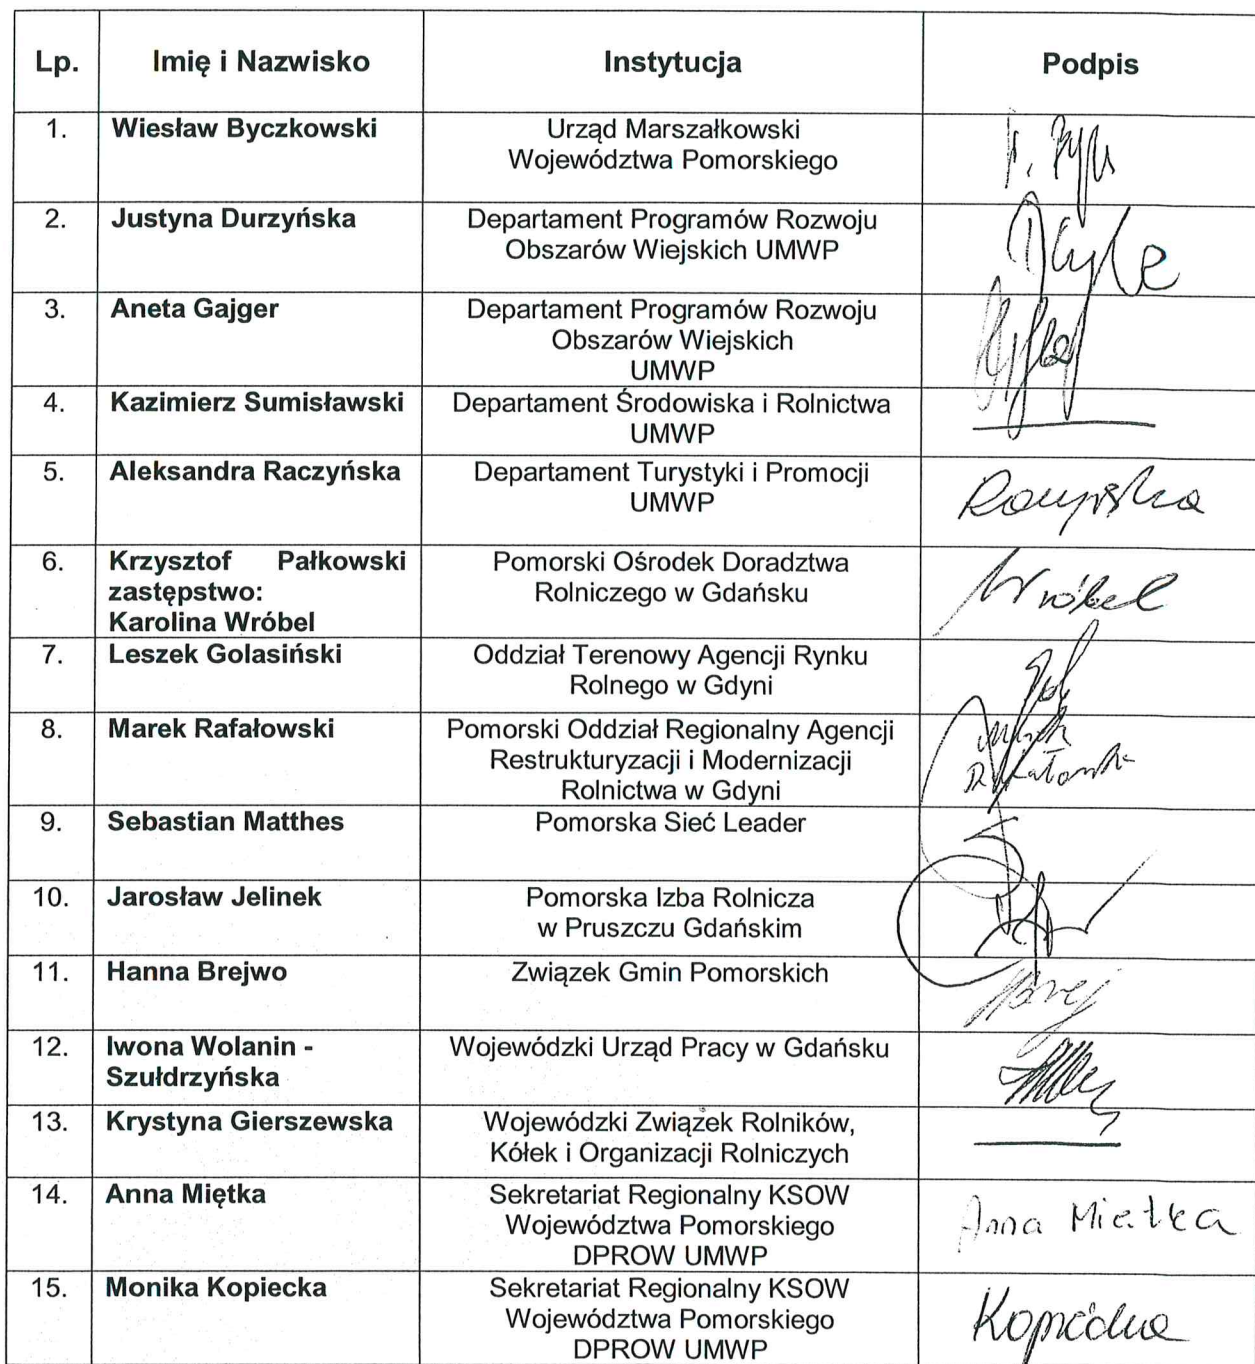 Lp. Imię i Nazwisko Instytucja Podpis
1. Wiesław Byczkowski Urząd Marszałkowski
Województwa Pomorskiego
2. Justyna Durzyńska Departament Programów Rozwoju
Obszarów Wiejskich UMWP
3. Aneta Gajger Departament Programów Rozwoju
Obszarów Wiejskich
UMWP
4. Kazimierz Sumisławski Departament Środowiska i Rolnictwa
UMWP
5. Aleksandra Raczyńska Departament Turystyki i Promocji
UMWP
6. Krzysztof Pałkowski Pomorski Ośrodek Doradztwa
zastępstwo: Rolniczego w Gdańsku Wróbel
Karolina Wróbel
7. Leszek Golasiński Oddział Terenowy Agencji Rynku
Rolnego w Gdyni
8. Marek Rafałowski Pomorski Oddział Regionalny Agencji
Restrukturyzacji i Modernizacji
Rolnictwa w Gdyni
9. Sebastian Matthes Pomorska Sieć Leader
10. Jarosław Jelinek Pomorska Izba Rolnicza
w Pruszczu Gdańskim
11. Hanna Brejwo Związek Gmin Pomorskich
12. Iwona Wolanin - Wojewódzki Urząd Pracy w Gdańsku
Szułdrzyńska
13. Krystyna Gierszewska Wojewódzki Związek Rolników,
Kółek i Organizacji Rolniczych
14. Anna Miętka Sekretariat Regionalny KSOW
Województwa Pomorskiego Anna Miętka
DPROW UMWP
15. Monika Kopiecka Sekretariat Regionalny KSOW
Województwa Pomorskiego
DPROW UMWP